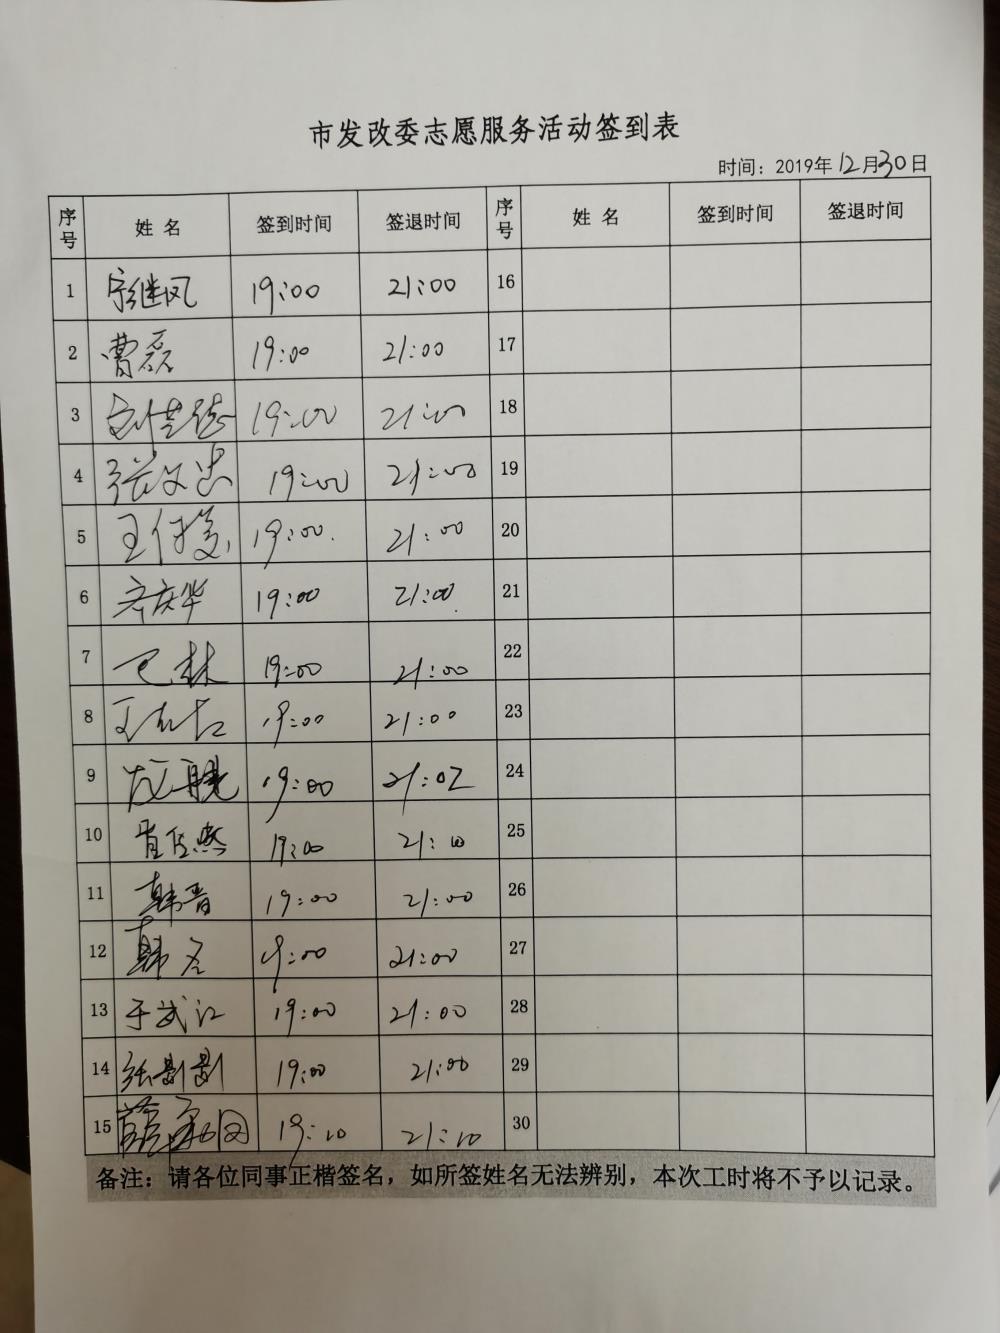 市发改委志愿服务活动签到表
时间：2019年12月30日
序号 姓名 签到时间 签退时间 序号 姓名 签到时间 签退时间
1 宗继风 19:00 21:00 16
2 曹磊 19:00 21:00 17
3 19:00 21:00 18
4 张文忠 19:00 21:00 19
5 19:00. 21:00 20
6 齐庆华 19:00 21:00. 21
7 巴林 19:00 21:00 22
8 19:00 21:00 23
9 19:00 21:02 24
10 19:00 21:10 25
11 韩晋 19:00 21:00 26
12 19:00 21:00 27
13 于武江 19:00 21:00 28
14 19:00 21:00 29
15 19:10 21:10 30
备注：请各位同事正楷签名，如所签姓名无法辨别，本次工时将不予以记录。